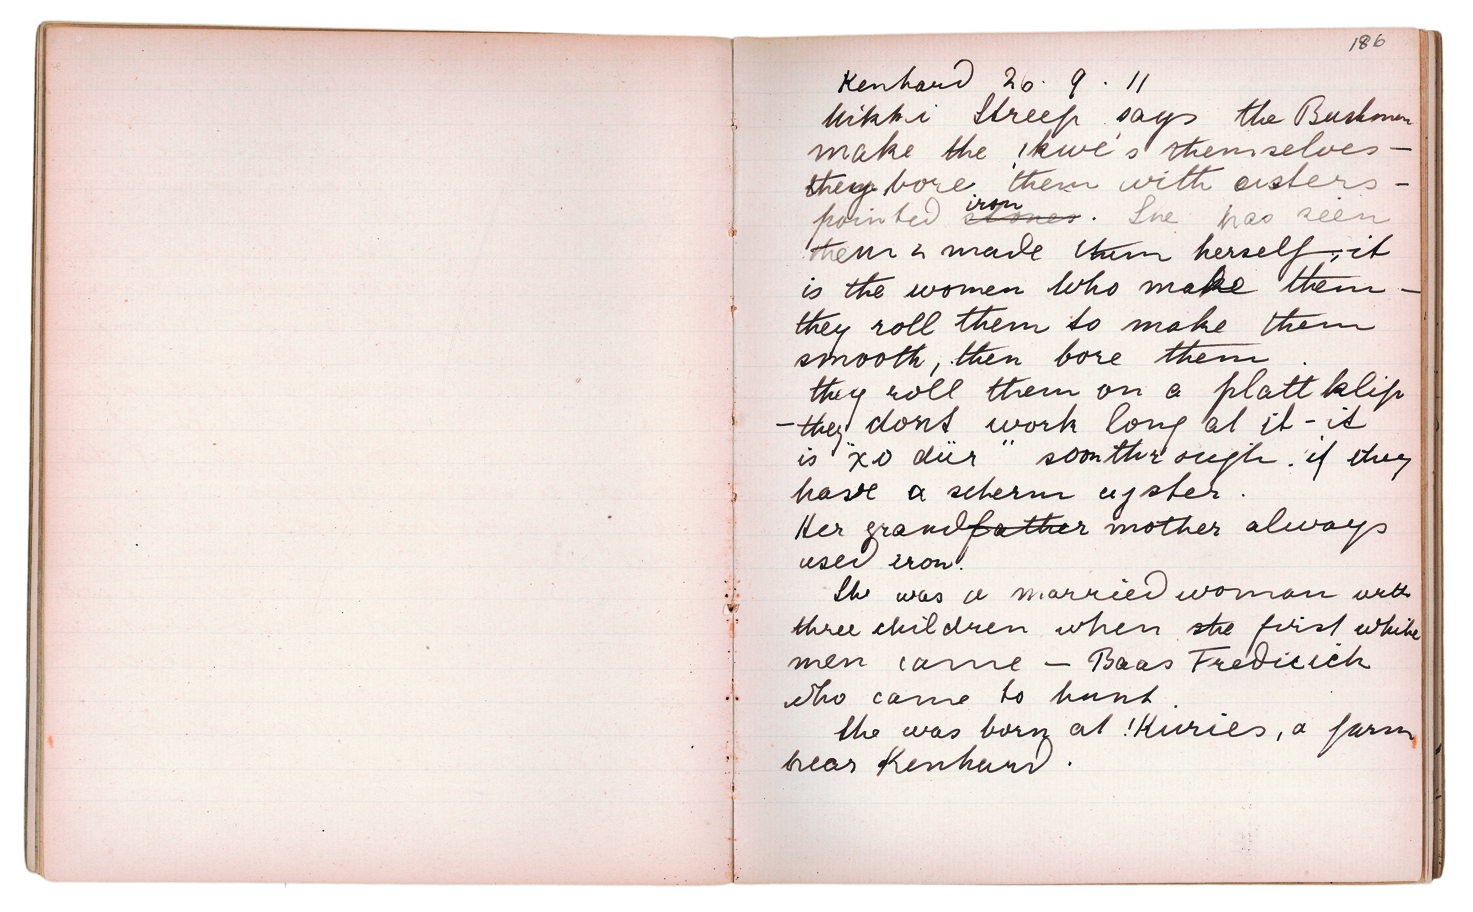 186
Kenhard 26. 9. 11
Mikki Streep says the Bushmen
make the !kwé's themselves —
they bore them with eisters —
pointed stones iron. She has seen
them & made them herself; it
is the women who make them —
they roll them to make them
smooth, then bore them.
they roll them on a platt klip
— they dont work long at it - it
is "xo düür" somthrough. if they
have a scherm eyster.
Her grandfather mother always
used iron.
She was a married woman with
three children when she first white
men came — Baas Frederick
who came to hunt.
She was born at !Kuries, a farm
near Kenhard.